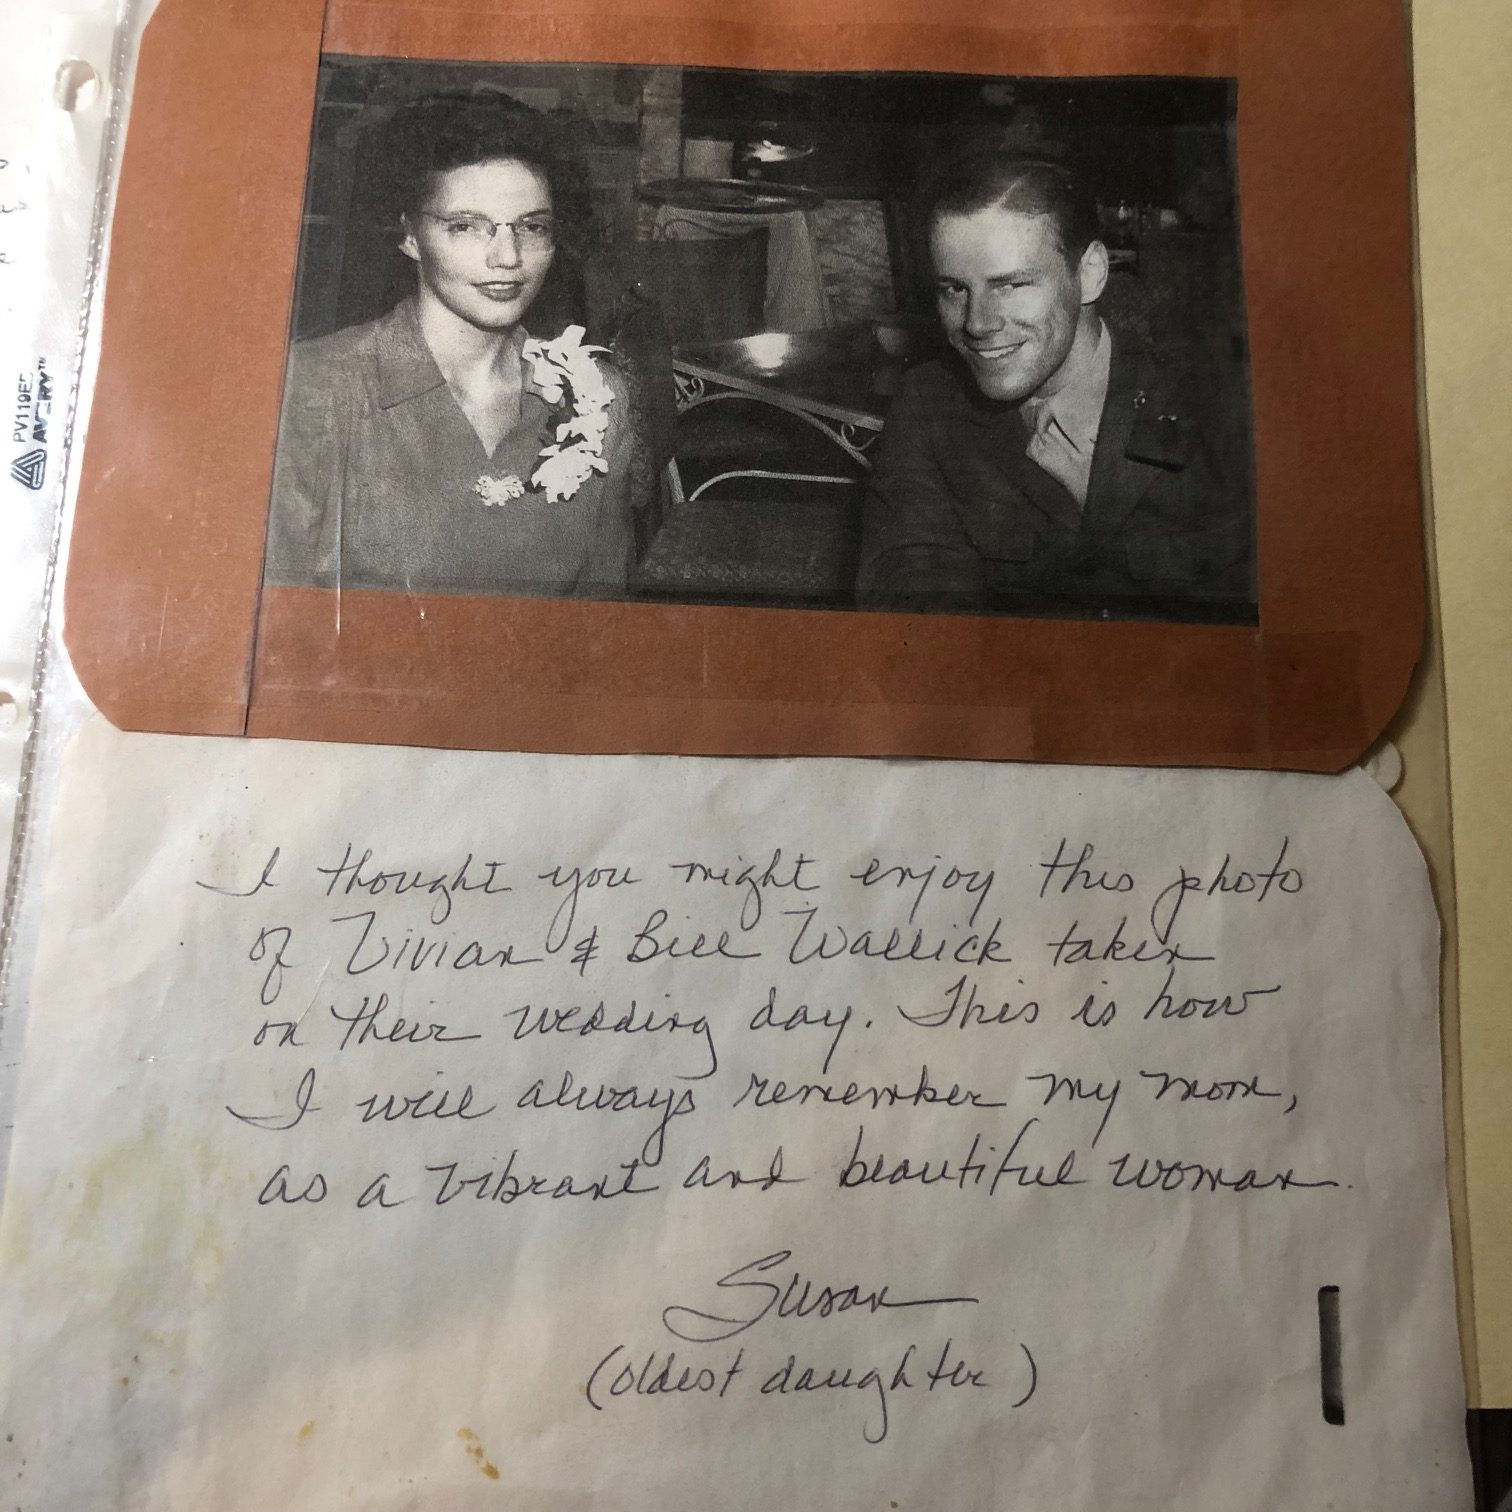 PV119E
AVERY™
I thought you might enjoy this photo
of Vivian & Bill Wallick taken
on their wedding day. This is how
I will always remember my mom,
as a vibrant and beautiful woman.
Susan
(oldest daughter)